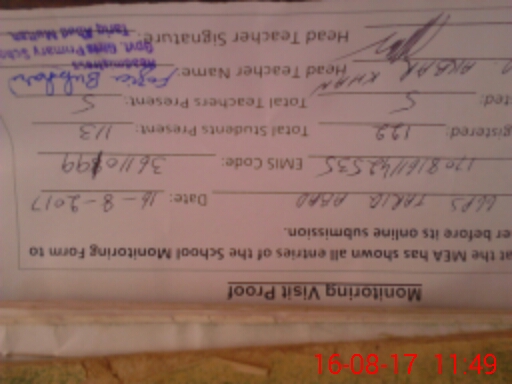 Monitoring Visit Proof
at the MEA has shown all entries of the School Monitoring Form to
er before its online submission.
GGPS TARIQ ABAD Date: 16-8-2017
EMIS Code: 36110899
gistered: 122 Total Students Present: 113
ted: 5 Total Teachers Present: 5
AKBAR KHAN Head Teacher Name: Fozia Bukhari
Head Teacher Signature:
Headmistress
Govt. Girls Primary Scho
Tariq Abad Multan
16-08-17 11:49